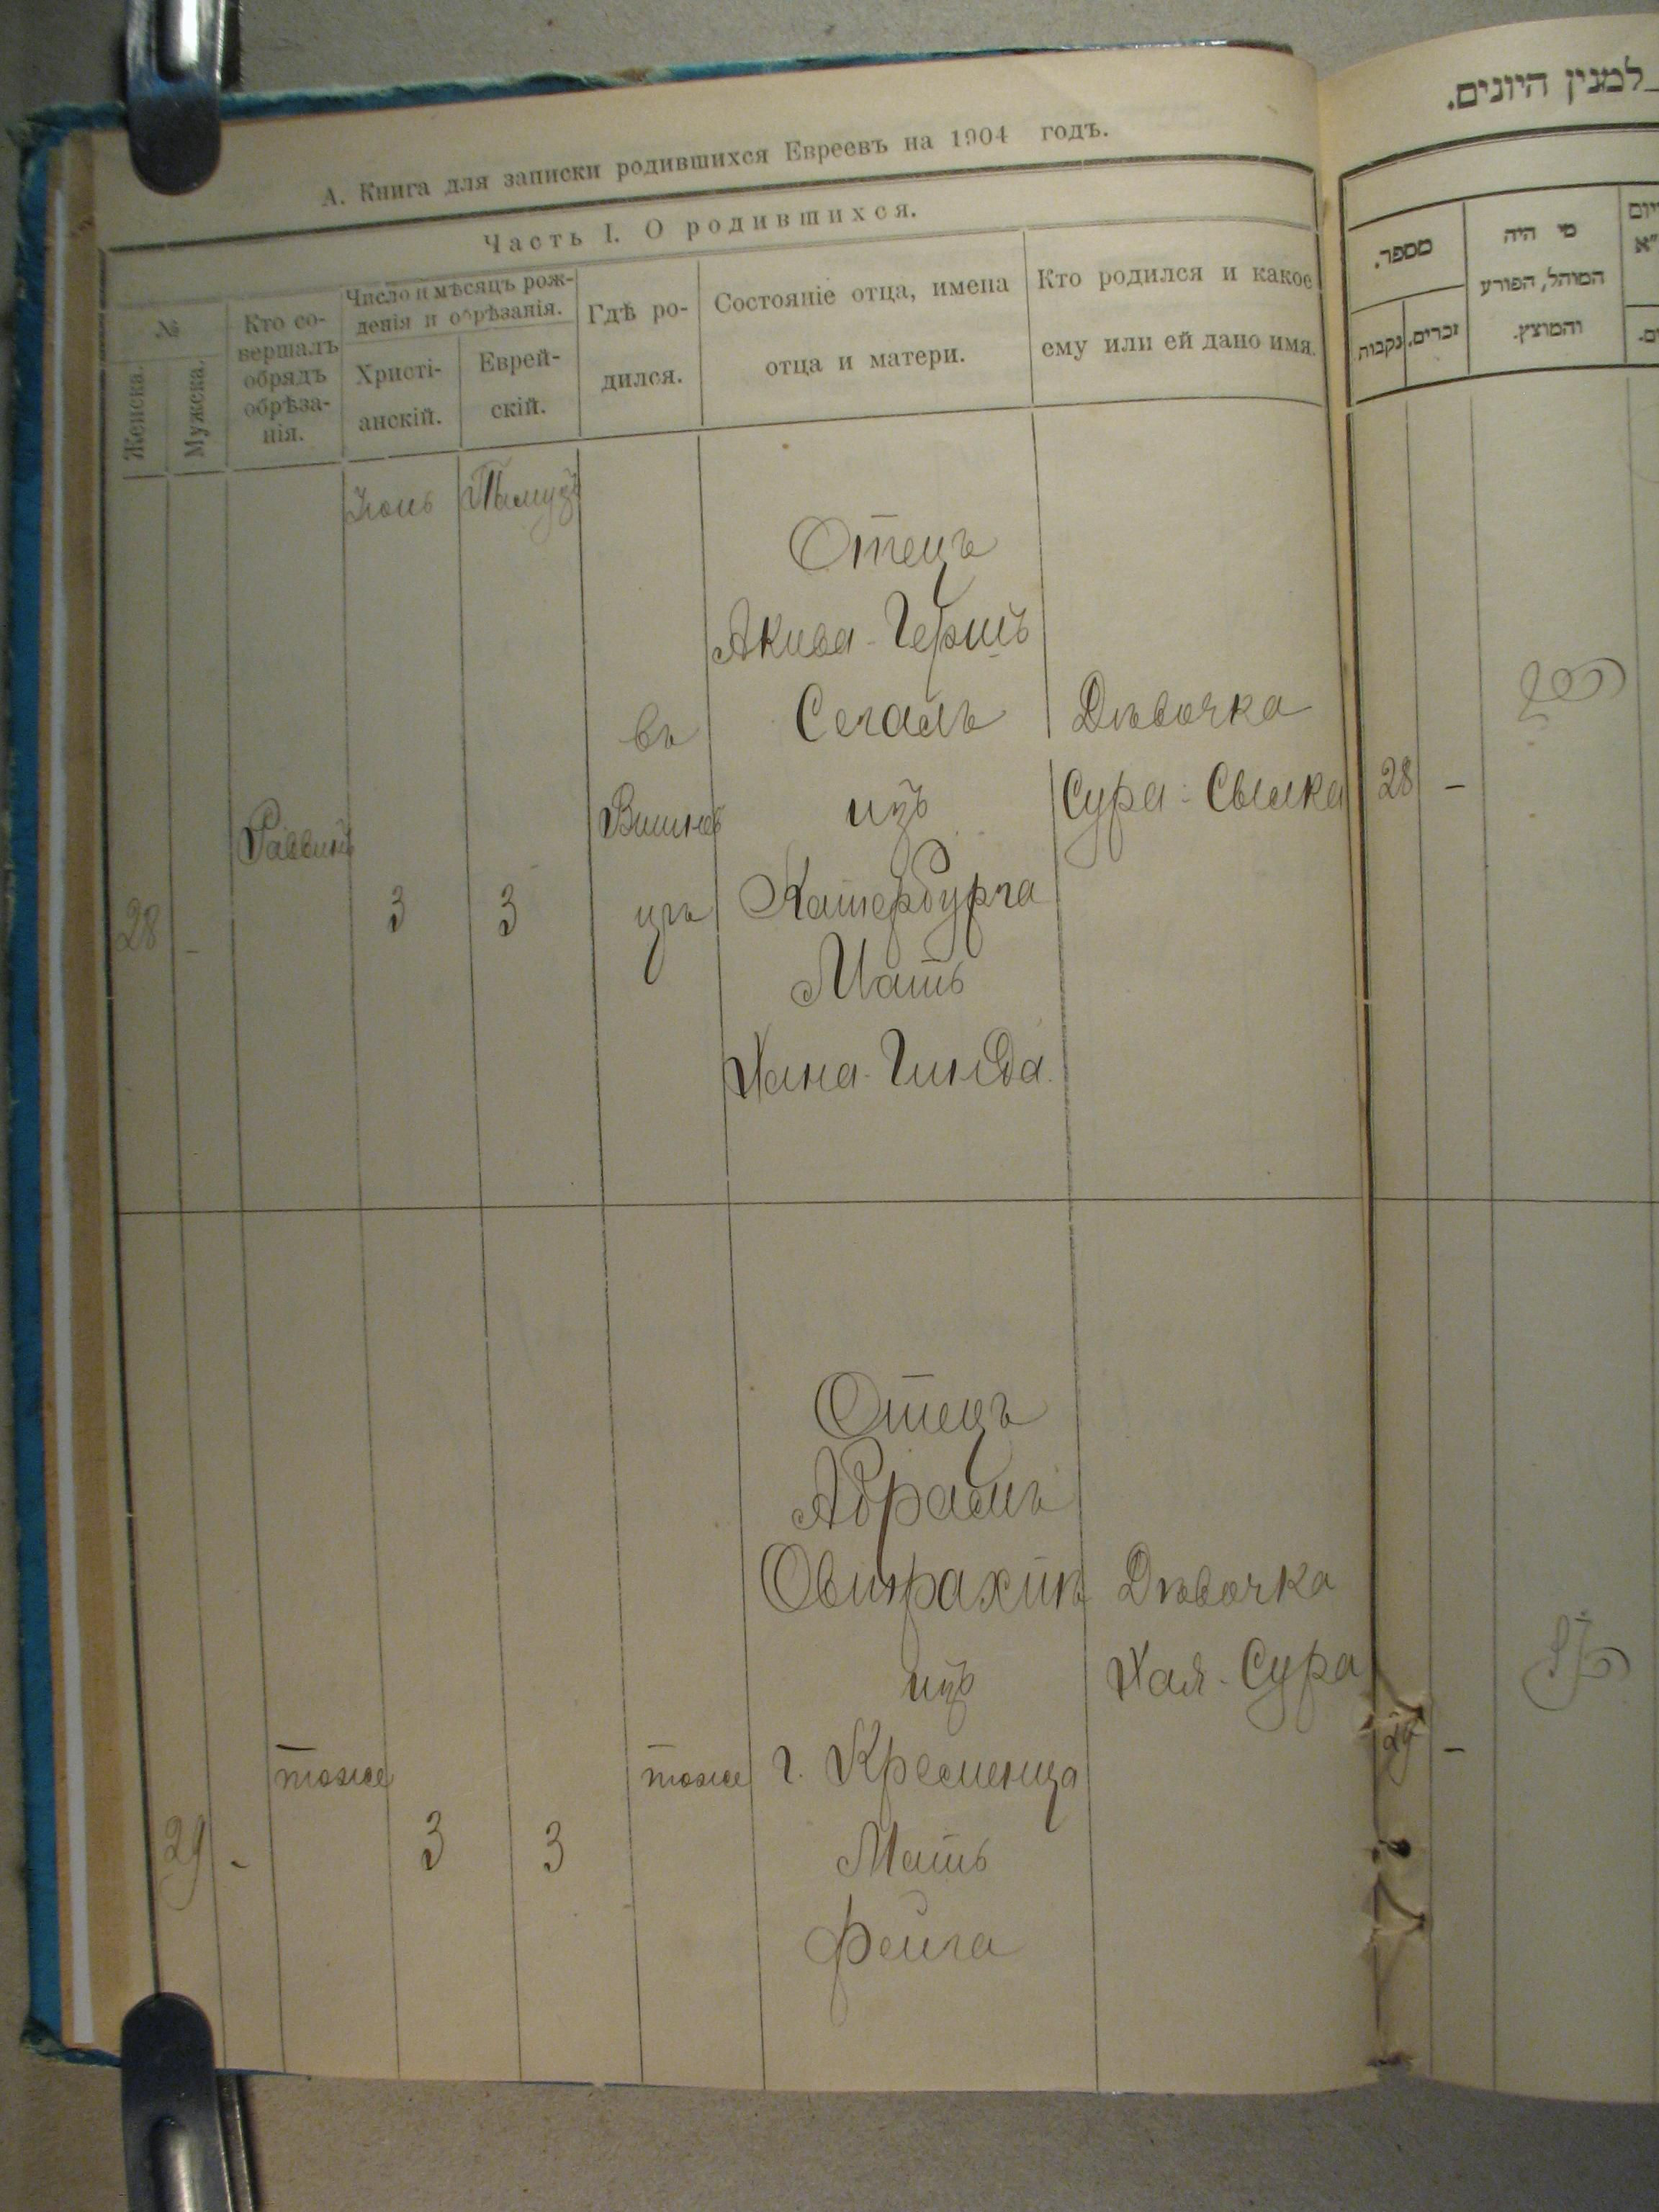 А. Книга для записки родившихся Евреевъ на 1904 годъ.
Часть I. О родившихся.
№
Женска.
Мужска.
Кто со-
вершалъ
обрядъ
обрѣза-
нія.
Число и мѣсяцъ рож-
денія и обрѣзанія.
Христі-
анскій.
Еврей-
скій.
Гдѣ ро-
дился.
Состояніе отца, имена
отца и матери.
Кто родился и какое
ему или ей дано имя.
28
-
Раввинъ
Іюнь
3
Тамузъ
3
въ
Вишнев
цѣ
Отецъ
Акива-Гершъ
Сегалъ
изъ
Катербурга
Мать
Хана-Гинда.
Дѣвочка
Сура-
29
-
тоже
3
3
тоже
Отецъ
Абрамъ
изъ
г. Кременца
Мать
Фейга
Дѣвочка
Хая-Сура
למנין היונים.
מספר.
נקבות
זכרים.
מי היה
המוהל, הפורע
והמוצץ.
28
-
29
-